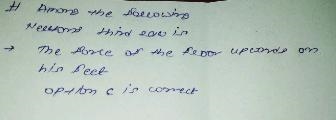 # Among the following
Newtons third law is
→ The force of the floor upwards on
his feet
option c is correct